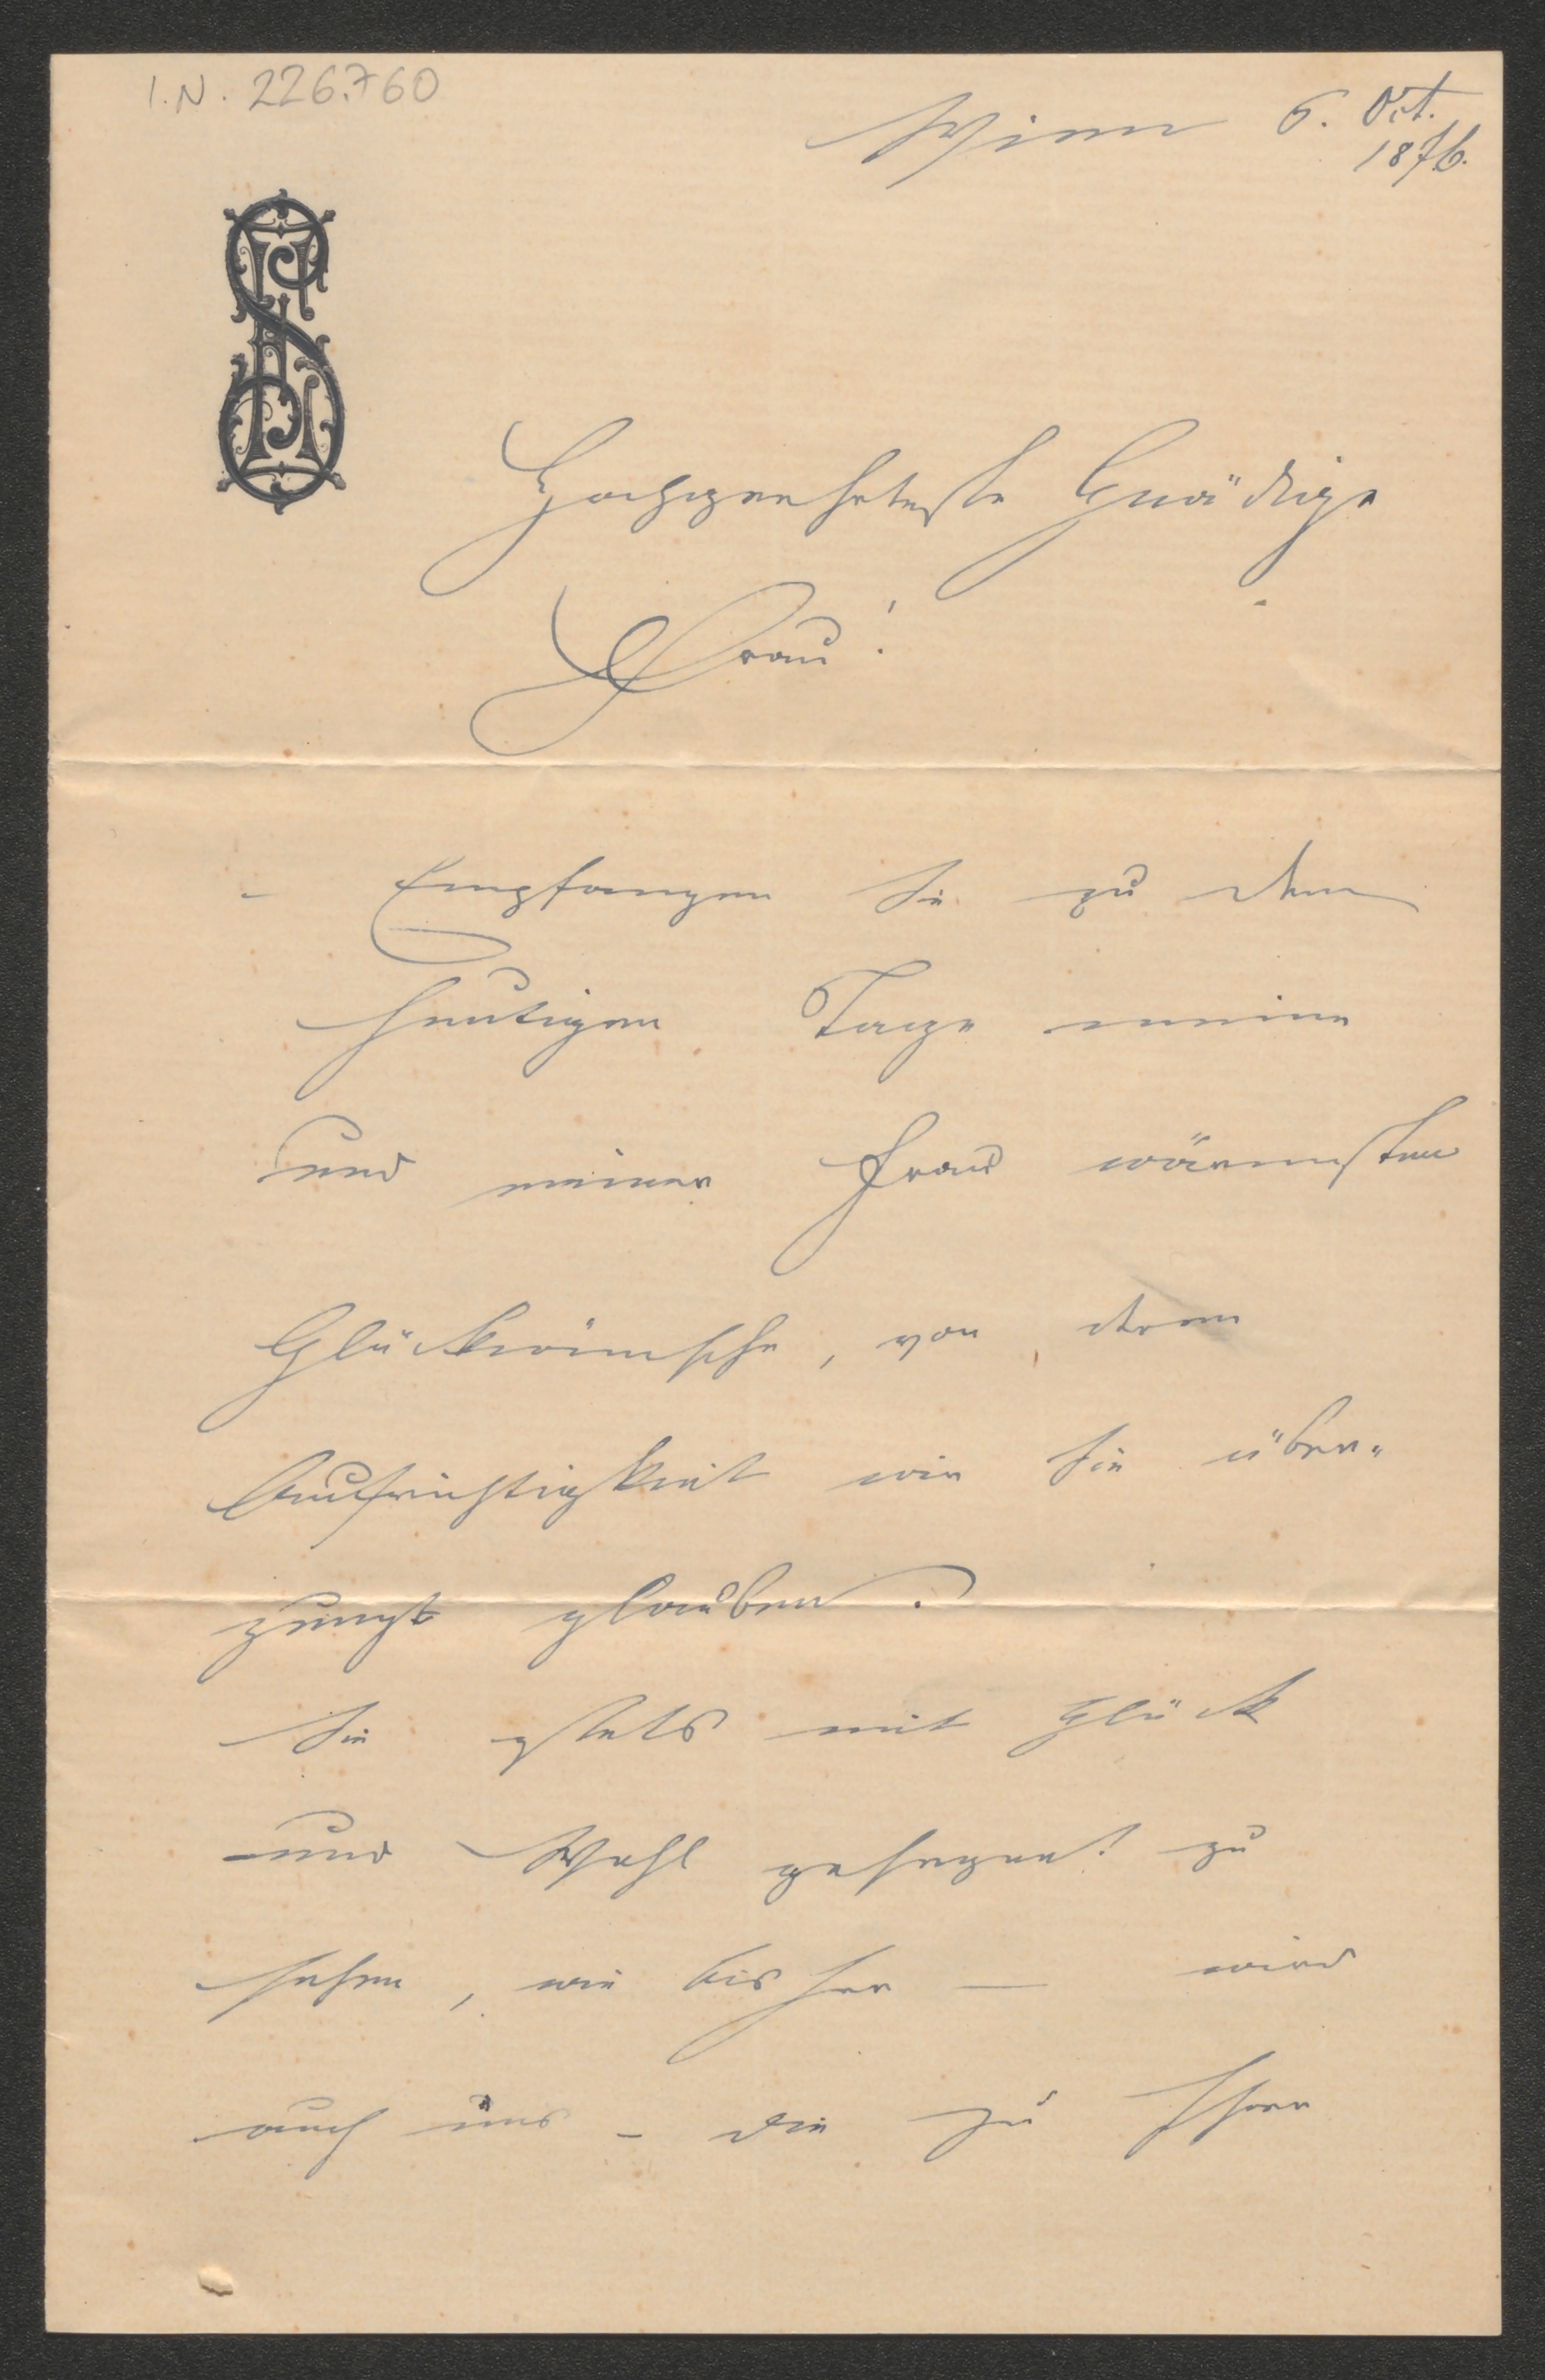 I.N. 226.760
Wien 6. Oct.
1876.
Hochgeehrteste Gnädige
Frau!
- Empfangen Sie zu dem
heutigen Tage meine
und meiner Frau wärmsten
Glückwünsche, von deren
Aufrichtigkeit wir Sie über-
zeugt glauben.
Sie stets mit Glück
und Wohl gesegnet zu
sehen, wie bisher — wird
auch uns - die zu Ihren